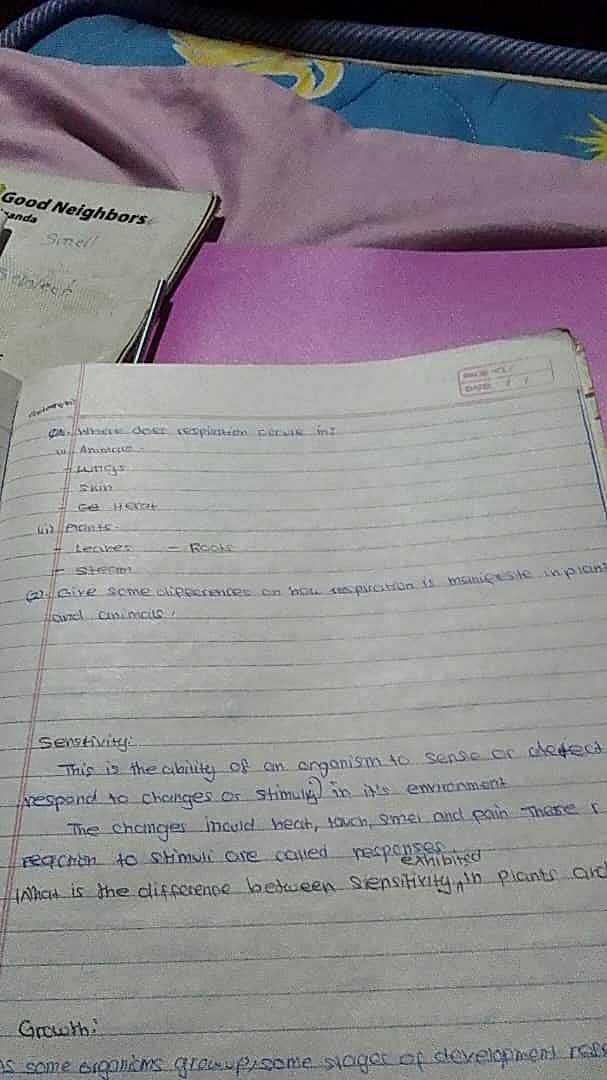 Good Neighbors
anda
Smell
PAGE NO.:
DATE: / /
Q1. Where does respiration occure in?
(i) Animals -
- Lungs
- Skin
- Ge Herat
(ii) Plants.
- Leaves - Roots
- Steam
(2) Give some differences on how respiration is manifeste in plant
and animals.
Senstivity:
This is the ability of an organism to sense or detect
respond to changes or stimuli) in it's environment
The changes inculd heat, touch, smel and pain These r
reaction to stimuli are called responses.
exhibited
What is the difference between Sensitivity in plants and
Growth:
As some organisms growup, some stages of development